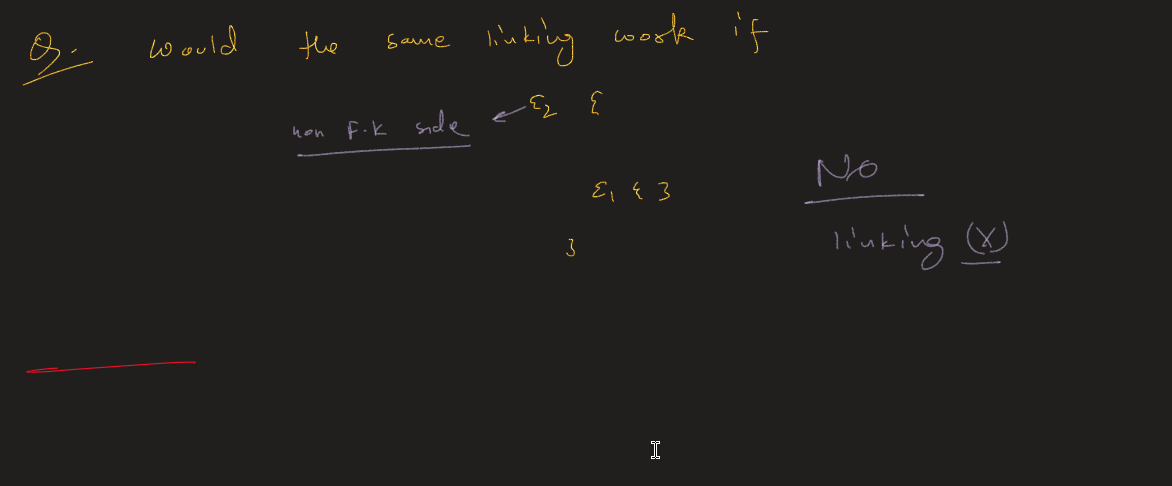 Q. would the same linking work if
non F.K side ← E2 {
E1 { }
}
No
linking (X)